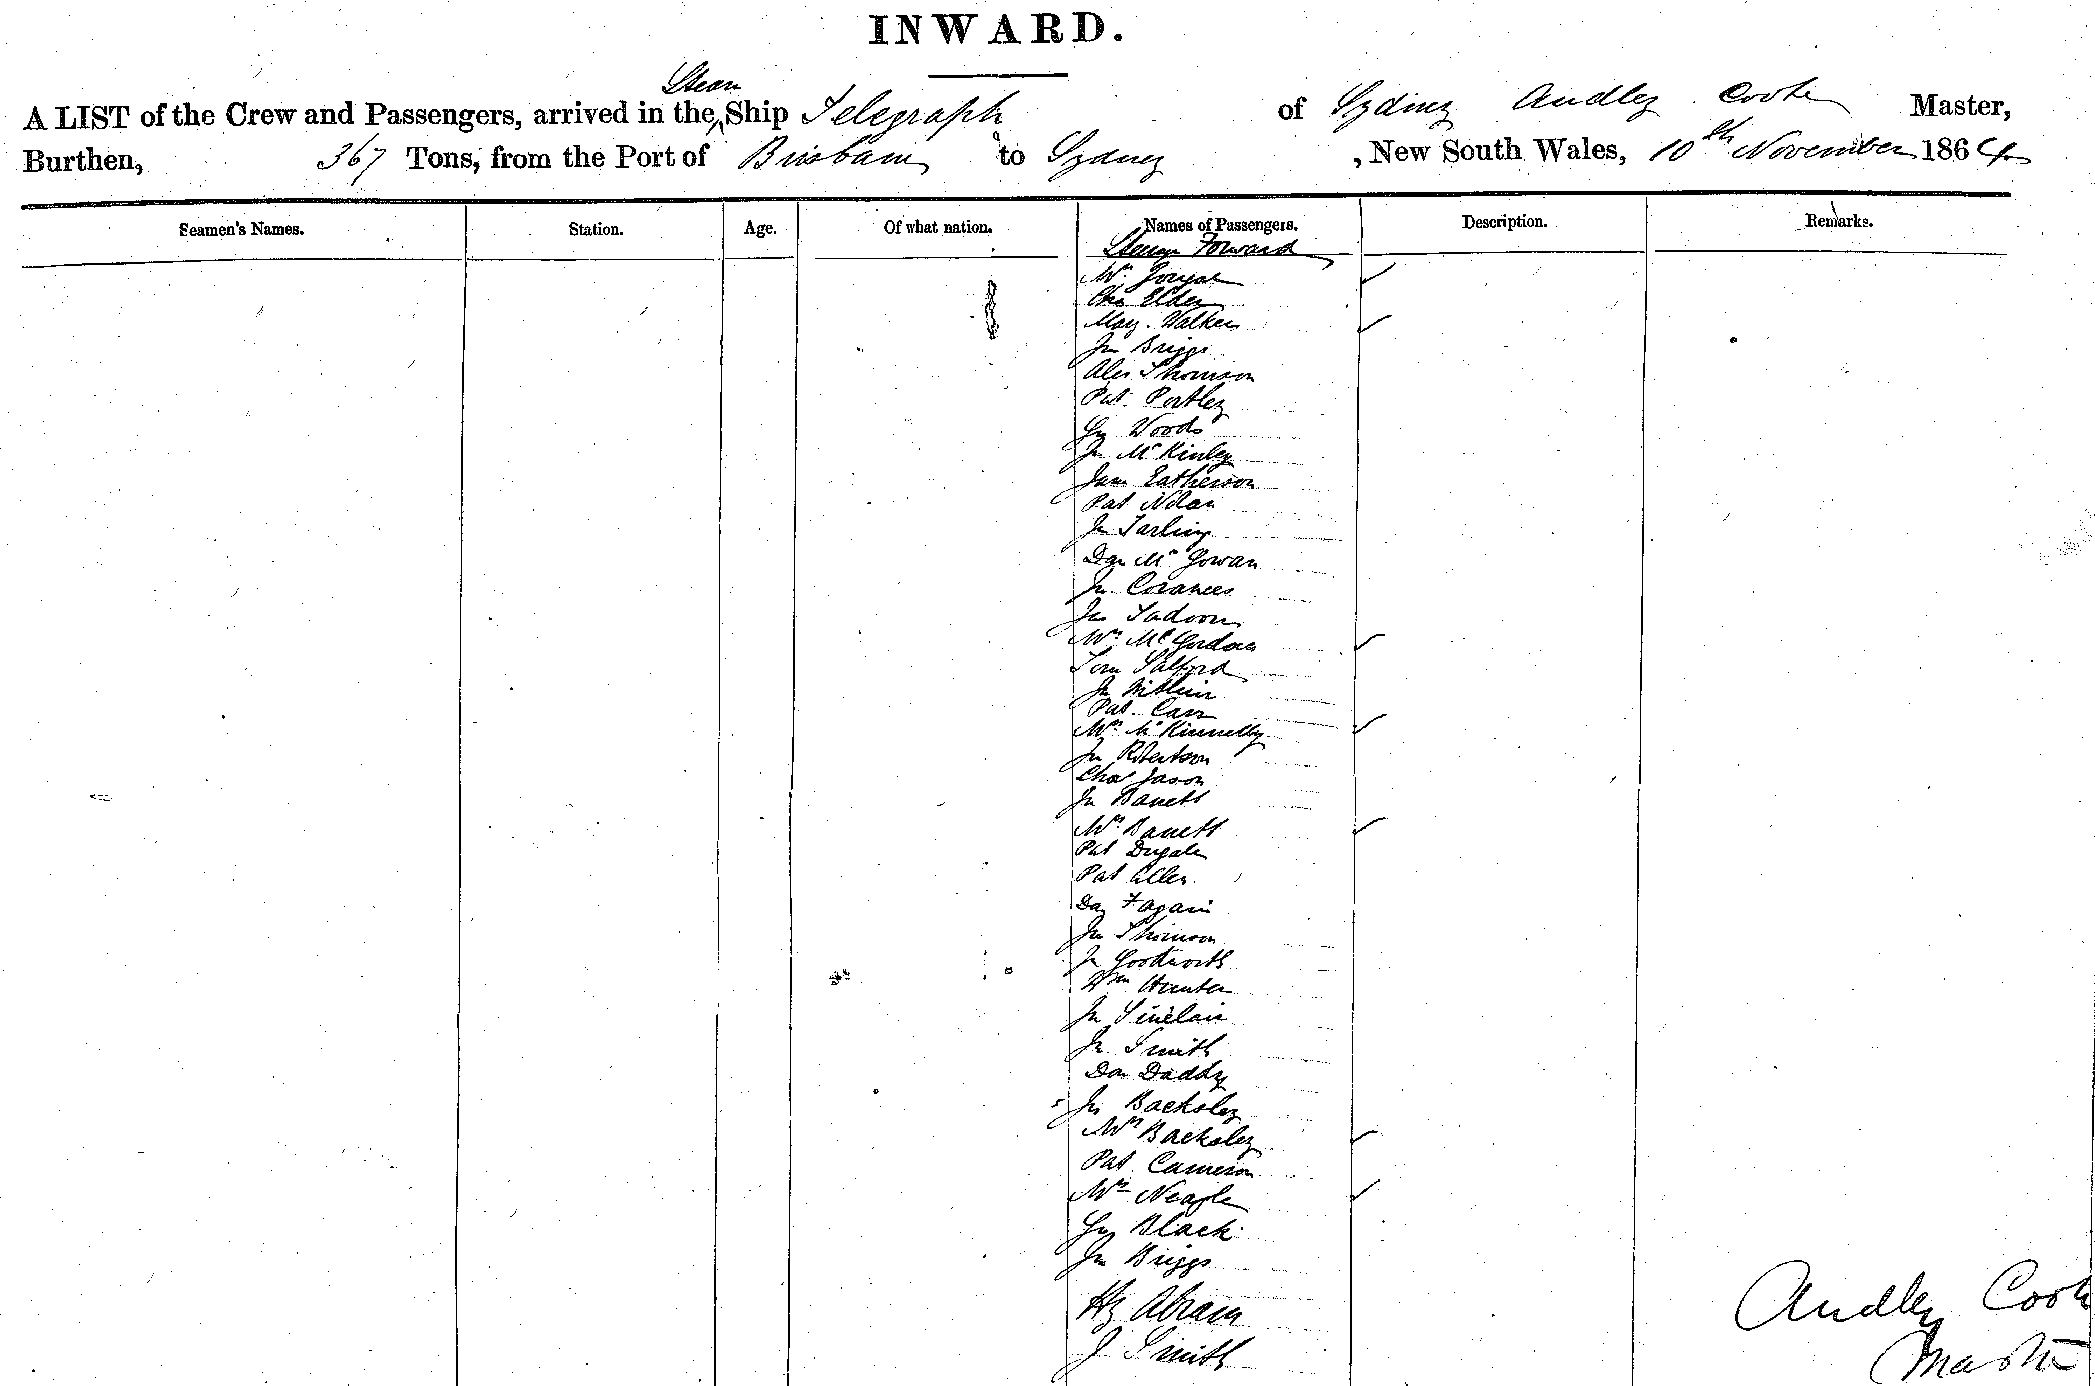 INWARD.
Steam
A LIST of the Crew and Passengers, arrived in the Ship Telegraph of Sydney Audley Coote Master,
Burthen, 367 Tons, from the Port of Brisbane to Sydney , New South Wales, 10th November 1864
Seamen's Names. Station. Age. Of what nation. Names of Passengers. Description. Remarks.
Forward
Mr
Chs Elder
Mary Walker
Jn Briggs
Alex Thomson
Pat Portley
Gy Woods
Jn McKinley
Jam Eatherson
Pat Nolan
Jn Tarling
Dan McGowan
Jn
Jn
Mrs McGordon
Tom Salford
Jn
Pat Carr
Mrs McKinnelly
Jn Robertson
Chas Jason
Jn Barrett
Mrs Barrett
Pat Dugale
Pat Allen
Dan Fagain
Jn Thomson
Jn Goodworth
Wm Hunter
Jn Sinclair
Jn Smith
Dan Daddy
Jn Backsley
Mrs Backsley
Pat Cameron
Mrs Neagle
Gy Black
Jn Briggs
Hy Abram
J Smith
Audley Coote
Master